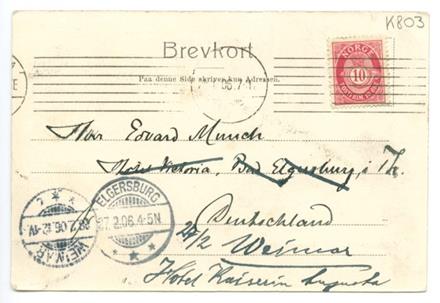 K803
Brevkort
Paa denne Side skrives kun Adressen.
NORGE
10
Herr Edvard Munch
Hotel Victoria, Bad Elgersburg, i Th.
Deutschland
27/2 Weimar
Hotel Kaiserin Augusta
ELGERSBURG
27.2.06.4-5N
WEIMAR